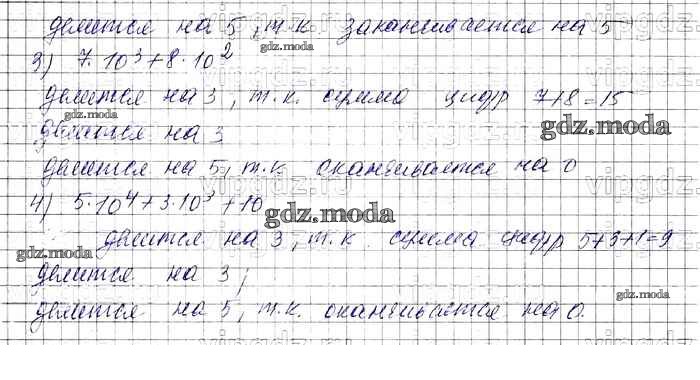 делится на 5, т.к. заканчивается на 5
3) 7·10³+8·10²
делится на 3, т.к. сумма цифр 7+8=15
делится на 3
делится на 5, т.к. оканчивается на 0
4) 5·10⁴+3·10³+10
делится на 3, т.к. сумма цифр 5+3+1=9
делится на 3;
делится на 5, т.к. оканчивается на 0.
gdz.moda
gdz.moda
gdz.moda
gdz.moda
gdz.moda
gdz.moda
gdz.moda
vipgdz.ru
vipgdz.ru
vipgdz.ru